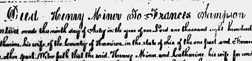 Deed Henry Minor To Francis Sampson
made this ninth day of July in the year of our Lord one thousand eight hundred
his wife of the County of Harrison, in the state of Ohio of the one part and
other part Witnesseth that the said Henry Minor and Katharine his wife for